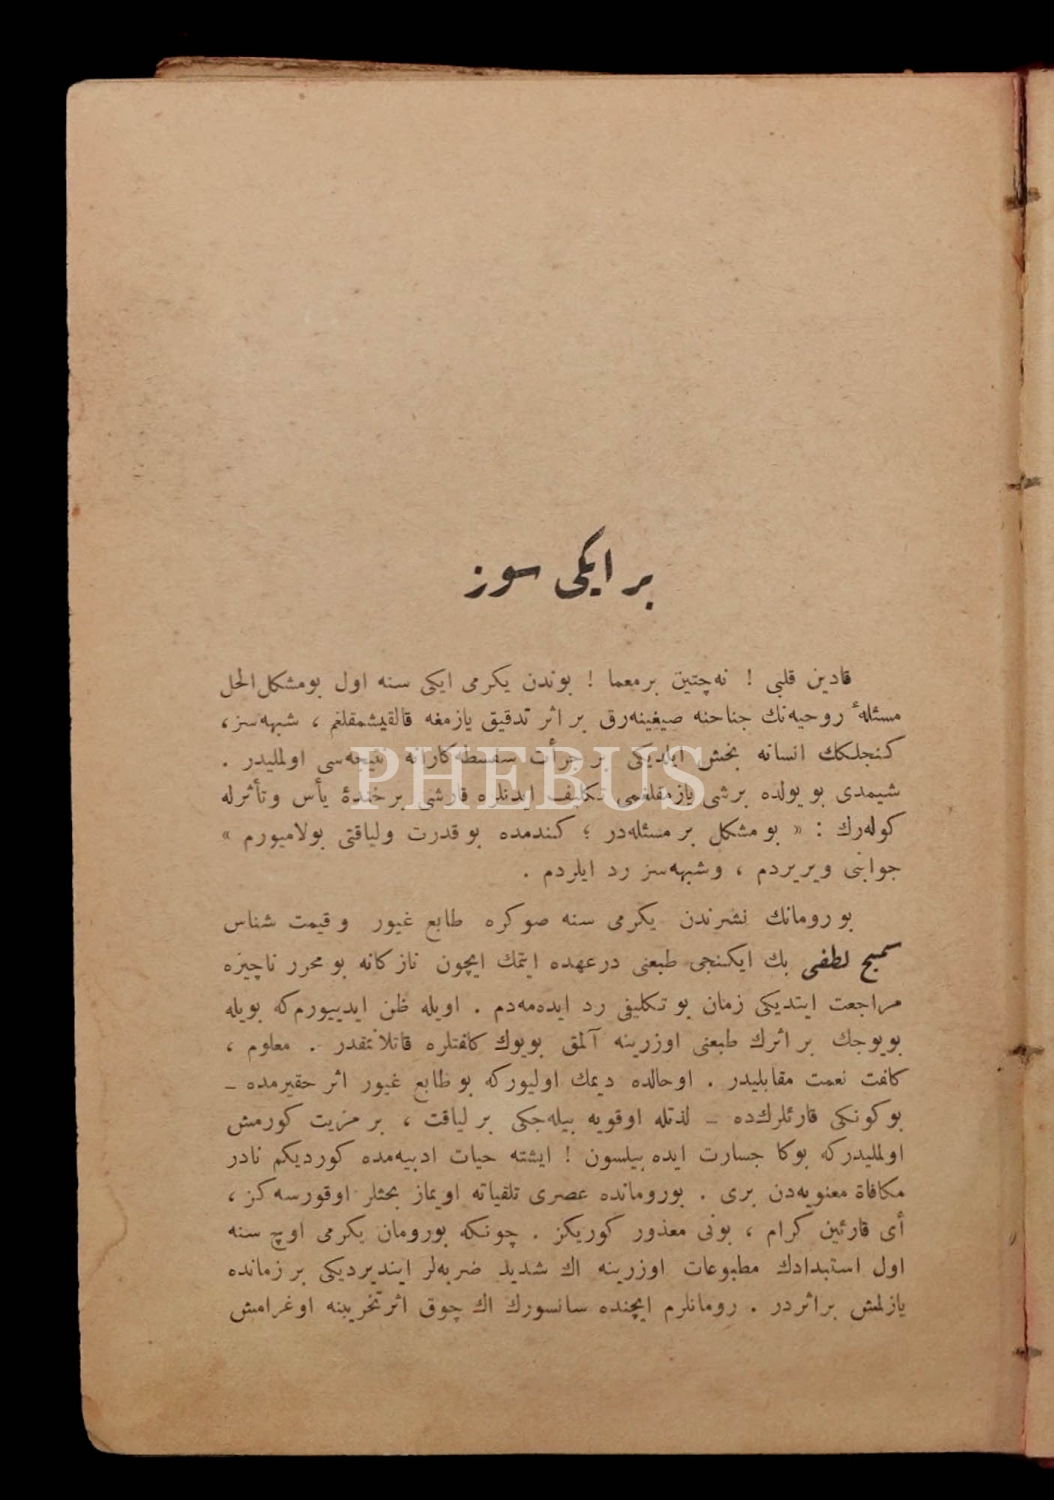 بر ایكی سوز
قادین قلبی ! نه‌چتین بر معما ! بوندن یكرمی ایكی سنه اول بومشكل‌الحل
مسئلهٔ روحیه‌نك جناحنه صیغینه‌رق بر اثر تدقیق یازمغه قالقیشمقلغم ، شبهه‌سز،
كنجلكك انسانه بخش ایلدیكی بر جرأت سفسطه‌كارانه نتیجه‌سی اولملیدر .
شیمدی بو یولده برشی یازمقلغمی تكلیف ایدنلره قارشی برخندهٔ یأس وتأثرله
كوله‌رك : « بو مشكل بر مسئله‌در ؛ كندمده بو قدرت ولیاقتی بولامیورم »
جوابنی ویریردم ، وشبهه‌سز رد ایلردم .
بو رومانك نشرندن یكرمی سنه صوكره طابع غیور وقیمت شناس
سمیح لطفی بك ایكنجی طبعنی درعهده ایتمك ایچون نازكانه بو محرر ناچیزه
مراجعت ایتدیكی زمان بو تكلیفی رد ایده‌مه‌دم . اویله ظن ایدییورم‌كه بویله
بویوجك بر اثرك طبعنی اوزرینه آلمق بویوك كلفتلره قاتلانمقدر . معلوم ،
كلفت نعمت مقابلیدر . اوحالده دیمك اولیوركه بو طابع غیور اثر حقیرمده ــ
بوكونكی قارئلرك‌ده ــ لذتله اوقویه بیله‌جكی بر لیاقت ، بر مزیت كورمش
اولملیدركه بوكا جسارت ایده بیلسون ! ایشته حیات ادبیه‌مده كوردیكم نادر
مكافاة معنویه‌دن بری . بورومانده عصری تلقیاته اویماز بحثلر اوقورسه‌كز ،
أی قارئین كرام ، بونی معذور كوریكز . چونكه بورومان یكرمی اوچ سنه
اول استبدادك مطبوعات اوزرینه اك شدید ضربه‌لر ایندیردیكی بر زمانده
یازلمش براثردر . رومانلرم ایچنده سانسورك اك چوق اثرتخریبنه اوغرامش
PHEBUS